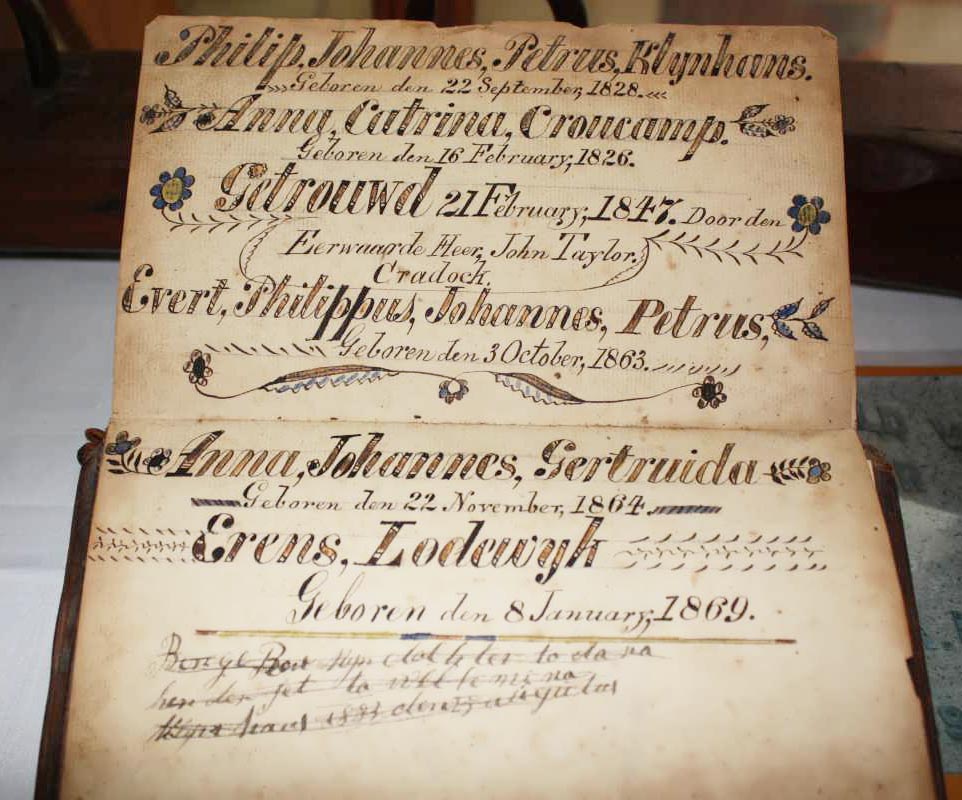 Philip, Johannes, Petrus, Klynhans.
Geboren den 22 September, 1828.
Anna, Catrina, Croucamp.
Geboren den 16 February, 1826.
Getrouwd 21 February, 1847. Door den
Eerwaarde Heer, John Taylor.
Cradock.
Evert, Philippus, Johannes, Petrus,
Geboren den 3 October, 1863.
Anna, Johannes, Gertruida
Geboren den 22 November, 1864.
Erens, Lodewyk
Geboren den 8 January, 1869.